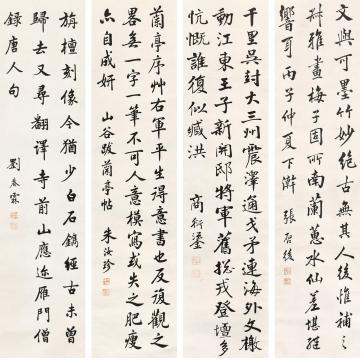 文與可墨竹妙絕古無其人後惟補之
叔雅畫梅子固所南蘭蕙水仙差堪繼
響耳丙子仲夏下澣 張啟後
千里吳封大三州震澤通戈矛連海外文檄
動江東王子新開邸將軍舊総戎登壇多
忼慨誰復似臧洪 商衍鎏
蘭亭序草右軍平生得意書也反復觀之
畧無一字一筆不可人意模寫或失之肥瘦
亦自成妍 山谷跋蘭亭帖 朱汝珍
旃檀刻像今猶少白石鐫經古未曾
歸去又尋翻譯寺前山應雁門僧
錄唐人句 劉春霖